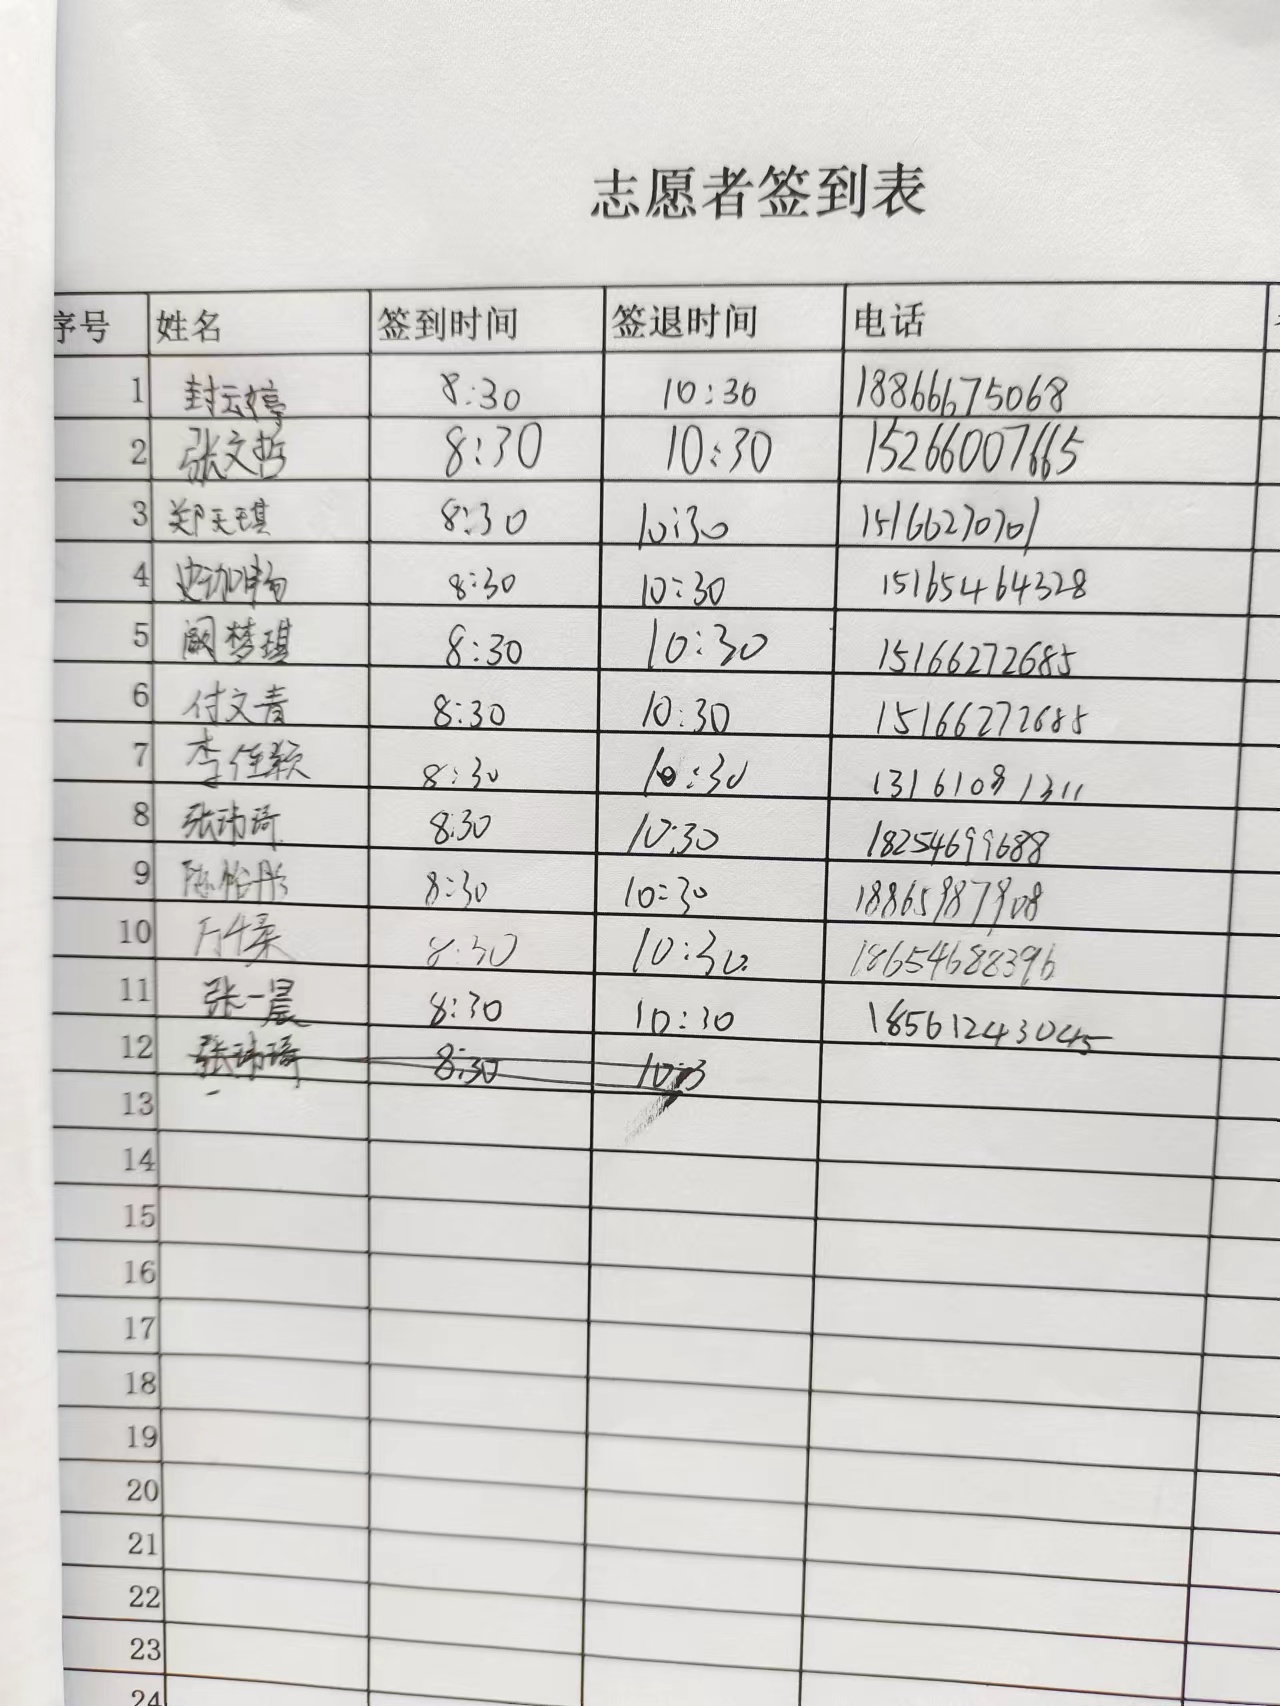 志愿者签到表
序号 姓名 签到时间 签退时间 电话
1 封云婷 8:30 10:30 18866675068
2 张文哲 8:30 10:30 15266007665
3 郑天琪 8:30 10:30 15166270701
4 8:30 10:30 15165464328
5 阚梦琪 8:30 10:30 15166272685
6 付文青 8:30 10:30 15166272685
7 李佳颖 8:30 10:30 13161081311
8 张玮琦 8:30 10:30 18254699688
9 陈怡彤 8:30 10:30 18865987908
10 8:30 10:30 18654688396
11 张一晨 8:30 10:30 18561243045
12 张玮琦 8:30 10:3
13
14
15
16
17
18
19
20
21
22
23
24